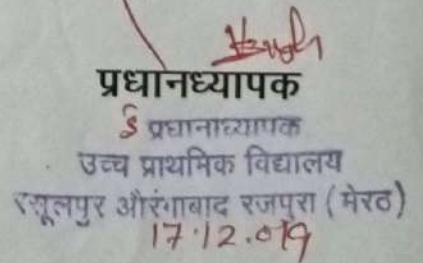 प्रधानध्यापक
इं प्रधानाध्यापक
उच्च प्राथमिक विद्यालय
रसूलपुर औरंगाबाद रजपुरा (मेरठ)
17.12.019